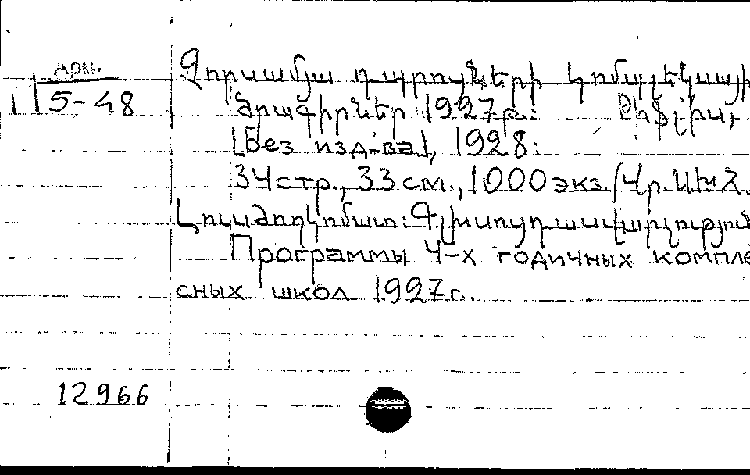 Арм.
5-48
Չորսամյա դպրոցների կոմպլեկսայի
ծրագիրներ 1927թ. Թիֆլիս,
[Без изд-ва], 1928.
34 стр., 33 см., 1000 экз. (Վր. Ս.Խ.Հ.
Լուսժողկոմատ: Գլխսոցդաստիարակություն
Программы 4-х годичных компле
сных школ 1927 г.
12966